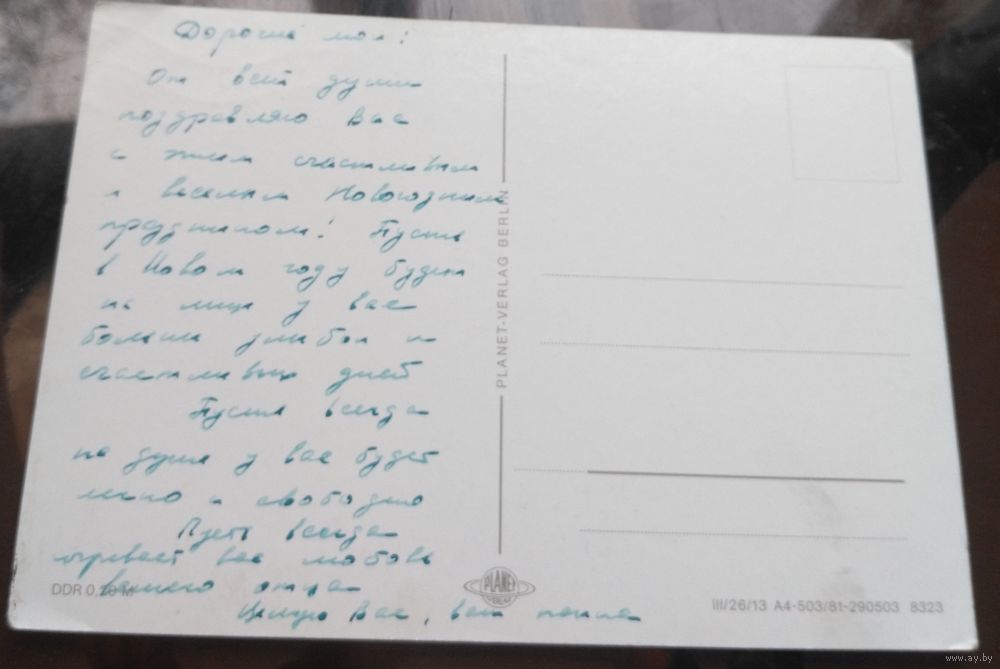 Дорогие мои!
От всей души
поздравляю Вас
с этим счастливым
и веселым Новогодним
праздником! Пусть
в Новом году будет
на лице у вас
больше улыбок и
счастливых дней
Пусть всегда
на душе у вас будет
легко и свободно
Пусть всегда
согревает вас любовь
вашего отца
Целую Вас, ваш папа
PLANET-VERLAG BERLIN
DDR 0,20 M
PLANET
III/26/13 A4-503/81-290503 8323
www.ay.by